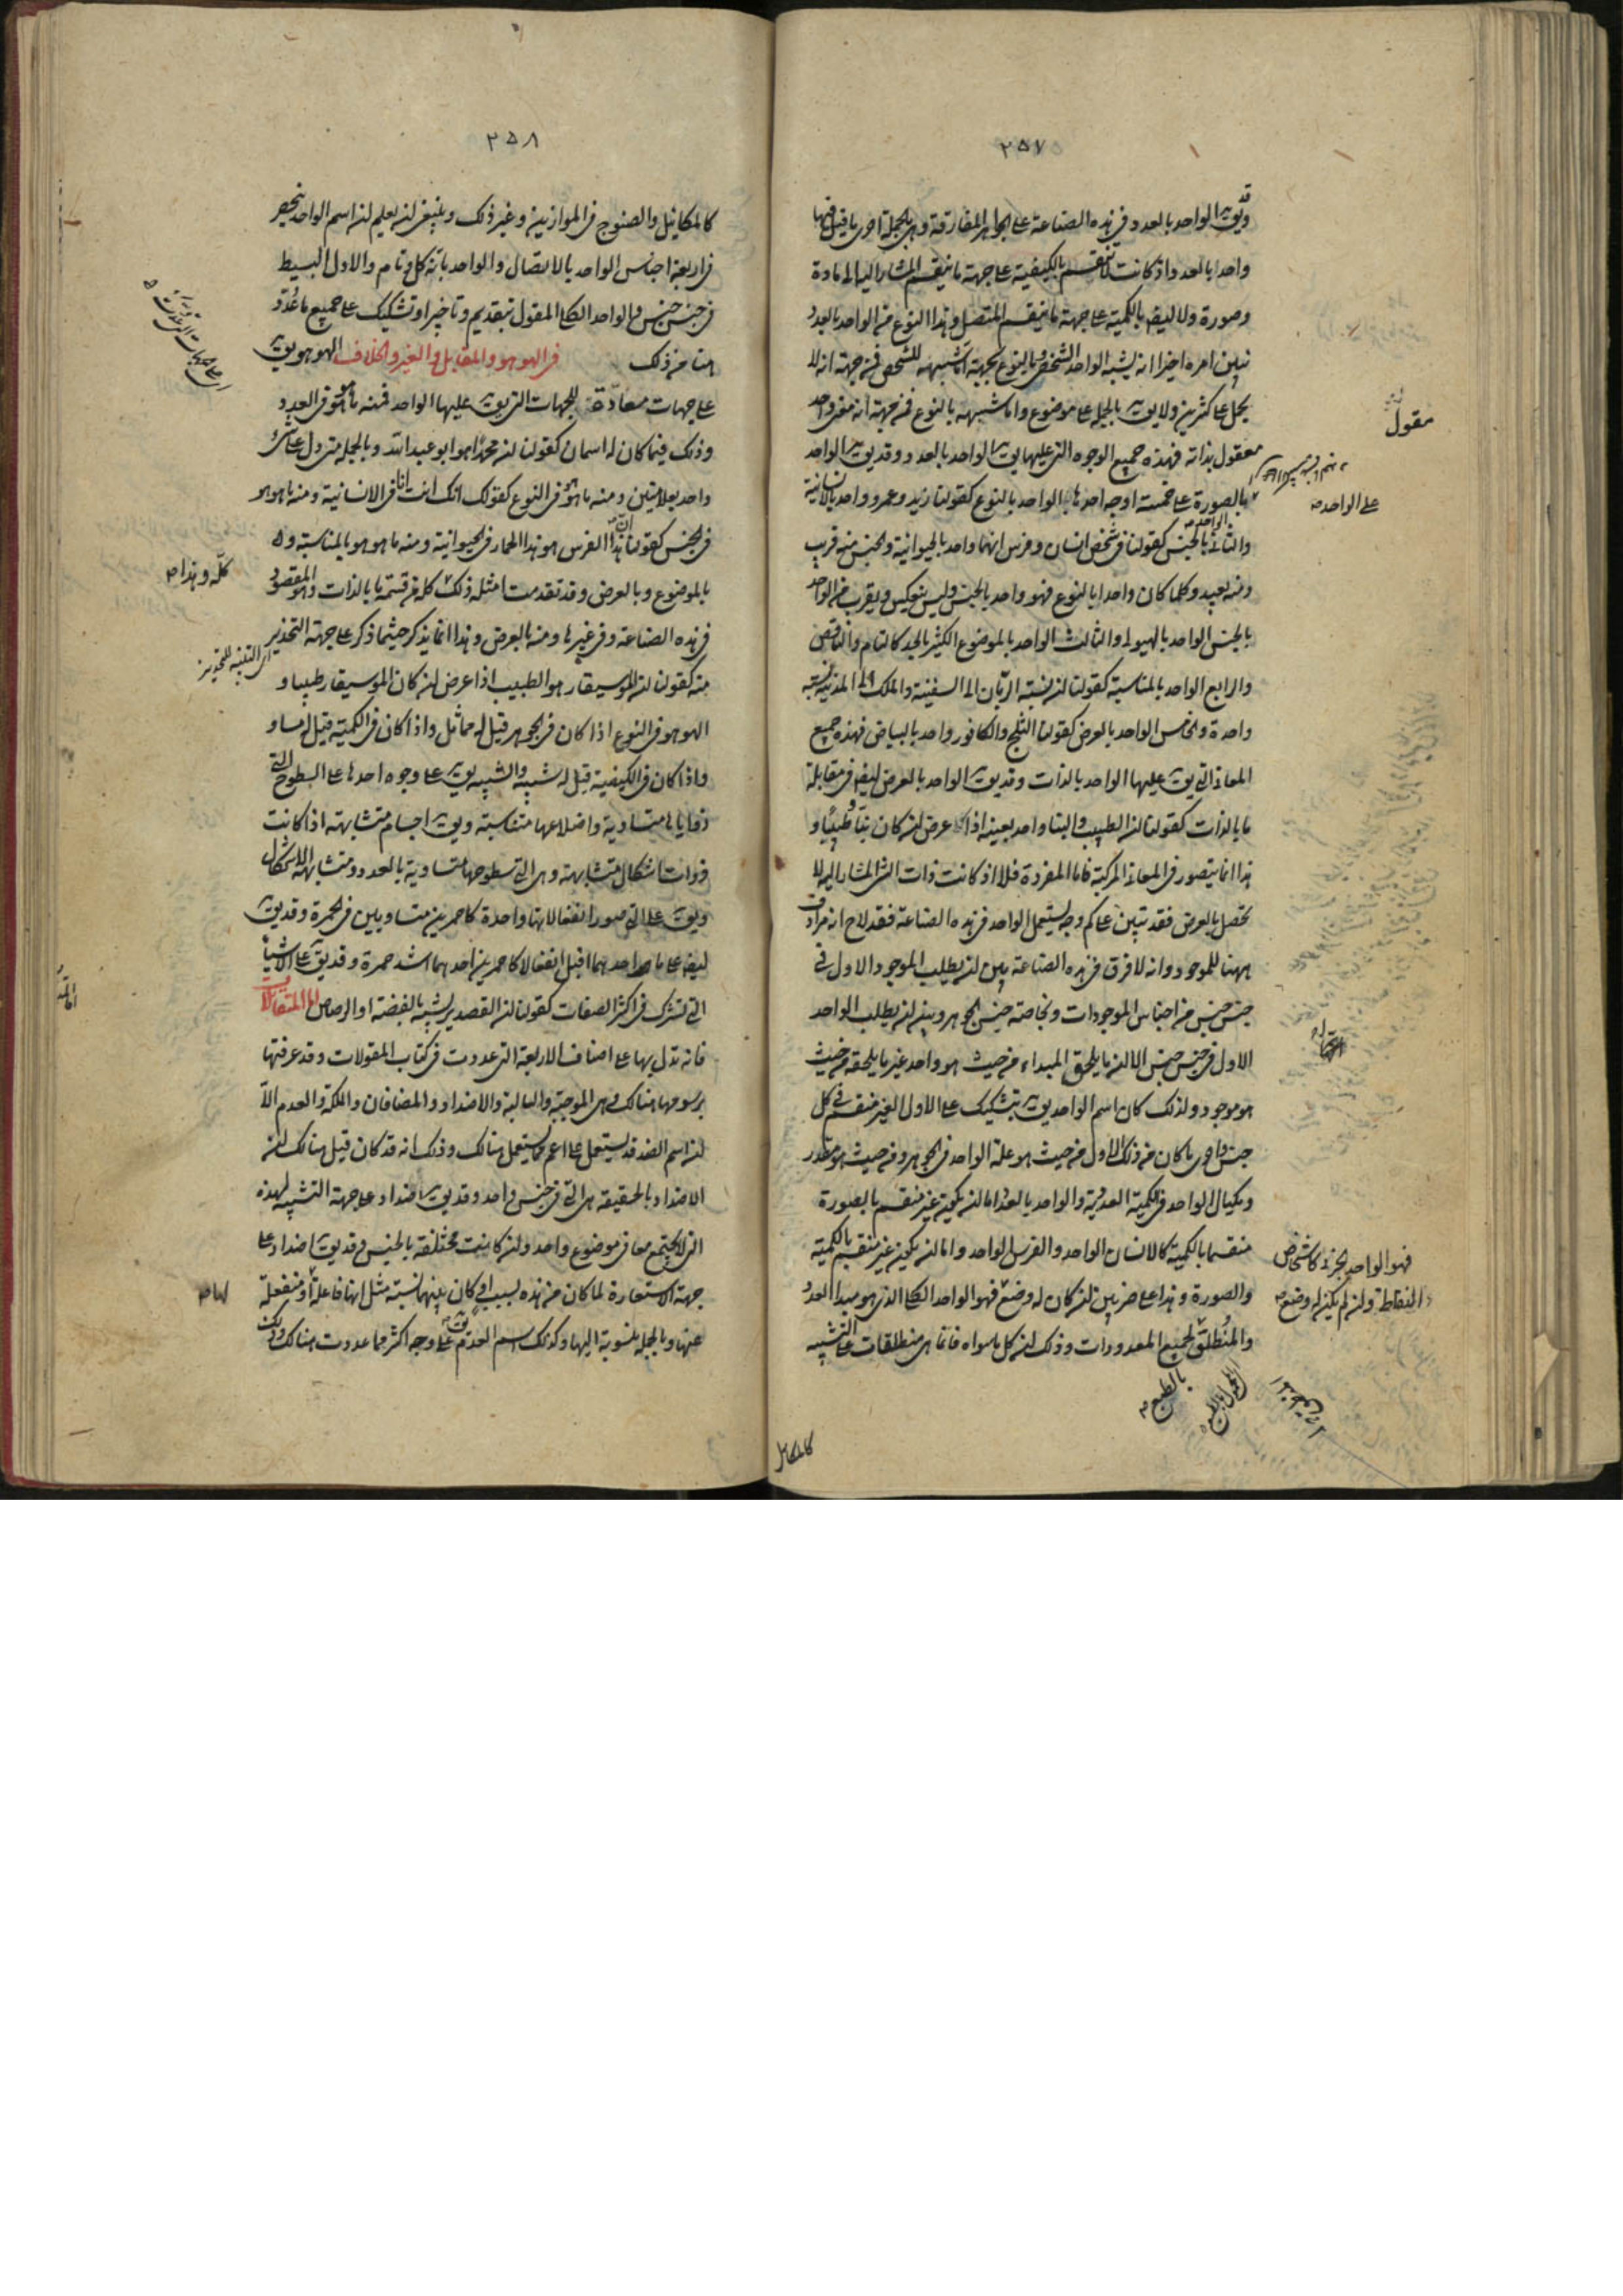 ٢٥٧
قد
ويقال الواحد بالعدد في هذه الصناعة على الجواهر المفارقة وهي بالجملة احرى ما قيل فيها
واحدا بالعدد اذ كانت لا تنقسم بالكيفية على جهة ما ينقسم المشار اليه الى مادة
وصورة ولا ايضا بالكمية على جهة ما ينقسم المتصل وهذا النوع من الواحد بالعدد
تبين امره اخيرا انه يشبه الواحد الشخص وبالنوع بجهة اما شبهه للشخص فمن جهة انه لا
يحمل على كثيرين ولا يقال بالجملة على موضوع واما شبهه بالنوع فمن جهة انه معنى واحد
معقول بذاته فهذه جميع الوجوه التي عليها يقال الواحد بالعدد وقد يقال الواحد
بالصورة على خمسة اوجه احدها الواحد بالنوع كقولنا زيد وعمرو واحد بالانسانية
والثاني الواحد بالجنس كقولنا في شخص انسان وفرس انهما واحد بالحيوانية والجنس منه قريب
ومنه بعيد وكلما كان واحدا بالنوع فهو واحد بالجنس وليس ينعكس ويقرب من الواحد
بالجنس الواحد بالهيولى والثالث الواحد بالموضوع الكثير بالحد كالتام والناقص
والرابع الواحد بالمناسبة كقولنا ان نسبة الربان الى السفينة والملك الى المدينة نسبة
واحدة والخامس الواحد بالعرض كقولنا الثلج والكافور واحد بالبياض فهذه جميع
المعاني التي يقال عليها الواحد بالذات وقد يقال الواحد بالعرض ايضا في مقابلة
ما بالذات كقولنا ان الطبيب والبناء واحد بعينه اذا عرض ان كان بناء طبيبا و
هذا انما يتصور في المعاني المركبة فاما المفردة فلا اذ كانت ذات الشئ المشار اليه لا
تحصل بالعرض فقد تبين على كم وجه يستعمل الواحد في هذه الصناعة فقد لاح انه مرادف
ههنا للموجود وانه لا فرق في هذه الصناعة بين ان يطلب الموجود الاول في
جنس جنس من اجناس الموجودات وبخاصة جنس الجوهر وبين ان يطلب الواحد
الاول في جنس جنس الا ان ما يلحق المبداء من حيث هو واحد غير ما يلحقه من حيث
هو موجود ولذلك كان اسم الواحد يقال بتشكيك على الاول الغير منقسم في كل
جنس واحرى ما كان من ذلك الاول من حيث هو علة الواحد في الجوهر ومن حيث هو مقدر
ومكيال الواحد في الكمية العددية والواحد بالعدد اما ان يكون غير منقسم بالصورة
منقسما بالكمية كالانسان الواحد والفرس الواحد واما ان يكون غير منقسم بالكمية
والصورة وهذا على ضربين ان كان له وضع فهو الواحد الكلي الذي هو مبدا العدد
والمنطلق لجميع المعدودات وذلك ان كل ما سواه فانما هي منطلقات على التشبيه
مقول
على الواحد صح
فهو الواحد الجزئي كاشخاص
النقاط وان لم يكن له وضع صح
بالطبع صح
كالمكاييل
٢٥٨
كالمكاييل والصنوج في الموازين وغير ذلك وينبغي ان يعلم ان اسم الواحد ينحصر
في اربعة اجناس الواحد بالاتصال والواحد بانه كل وتام والاول البسيط
في جنس جنس والواحد الكلي المقول بتقديم وتاخير او تشكيك على جميع ما عدد
هنا من ذلك في الهو هو والمقابل والغير والخلاف الهو هو يقال
على جهات معادة للجهات التي يقال عليها الواحد فمنه ما هو في العدد
وذلك فيما كان له اسمان كقولنا ان محمدا هو ابو عبد الله وبالجملة متى دل على شئ
واحد بعلامتين ومنه ما هو في النوع كقولك انك انت انا في الانسانية ومنه ما هو هو
في الجنس كقولنا ان هذا الفرس هو هذا الحمار في الحيوانية ومنه ما هو هو بالمناسبة و
بالموضوع وبالعرض وقد تقدمت امثلة ذلك كله في قسمة ما بالذات والمقصود
في هذه الصناعة وفي غيرها ومنه بالعرض وهذا انما يذكر حيثما ذكر على جهة التحذير
منه كقولنا ان الموسيقار هو الطبيب اذا عرض ان كان الموسيقار طبيبا و
الهو هو في النوع اذا كان في الجوهر قيل له مماثل واذا كان في الكمية قيل له مساو
واذا كان في الكيفية قيل له شبيه والشبيه يقال على وجوه احدها على السطوح التي
زواياها متساوية واضلاعها متناسبة ويقال اجسام متشابهة اذا كانت
ذوات اشكال متشابهة وهي التي سطوحها متساوية بالعدد ومتشابهة الاشكال
ويقال على التي صور انفعالاتها واحدة كاحمرين متساويين في الحمرة وقد يقال
ايضا على ما احدهما اقبل انفعالا كاحمرين احدهما اشد حمرة وقد يقال على الاشياء
التي تشترك في اكثر الصفات كقولنا ان القصدير يشبه بالفضة او الرصاص اما المتقابلات
فانه تدل بها على اصناف الاربعة التي عددت في كتاب المقولات وقد عرفتها
برسومها هنالك وهي الموجبة والسالبة والاضداد والمضافان والملكة والعدم الا
ان اسم الضد قد يستعمل على اعم مما يستعمل هنالك وذلك انه قد كان قيل هنالك ان
الاضداد بالحقيقة هي التي في جنس واحد وقد يقال اضداد على جهة التشبيه لهذه
التي لا تجتمع معا في موضوع واحد وان كانت مختلفة بالجنس وقد يقال اضداد على
جهة الاستعارة لما كان من هذه بسبب او كان بينهما نسبة مثل انها فاعلة او منفعلة
عنها وبالجملة منسوبة اليها وكذلك اسم العدم يقال على وجوه اكثر مما عددت هنالك وذلك
كله وهذا صح
اي التنبيه للتحذير